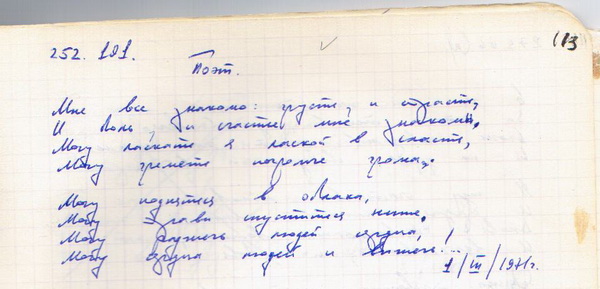 252. 181. (13
Поэт.
Мне все знакомо: грусть, и страсть,
И боль, и счастье мне знакомы.
Могу ласкать я лаской в сласть,
Могу греметь погромче грома.
Могу подняться в облака,
Могу травы спуститься ниже.
Могу людей сердца,
Могу сердца людей и !..
1/III/1971г.